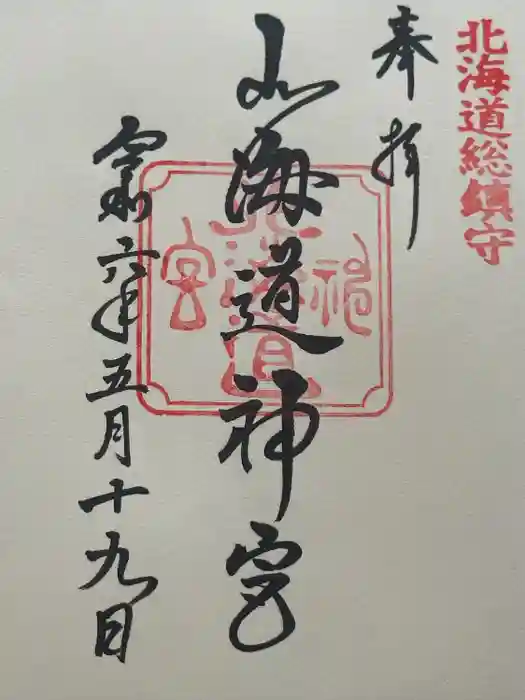 北海道総鎮守
奉拝
北海道神宮
北海道神宮
令和六年五月十九日